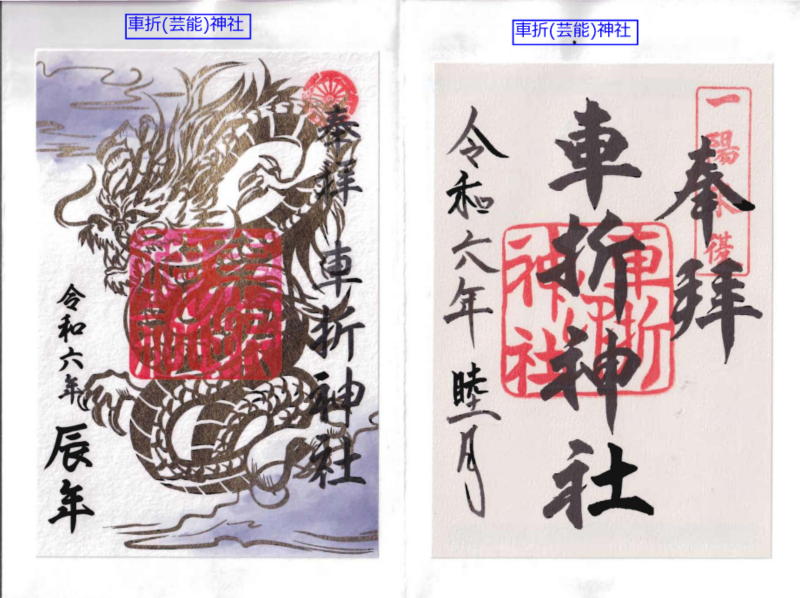 車折(芸能)神社
奉拝 車折神社
車折
神社
令和六年
辰年
車折(芸能)神社
奉拝
一陽来
車折神社
車折
神社
令和六年 睦月